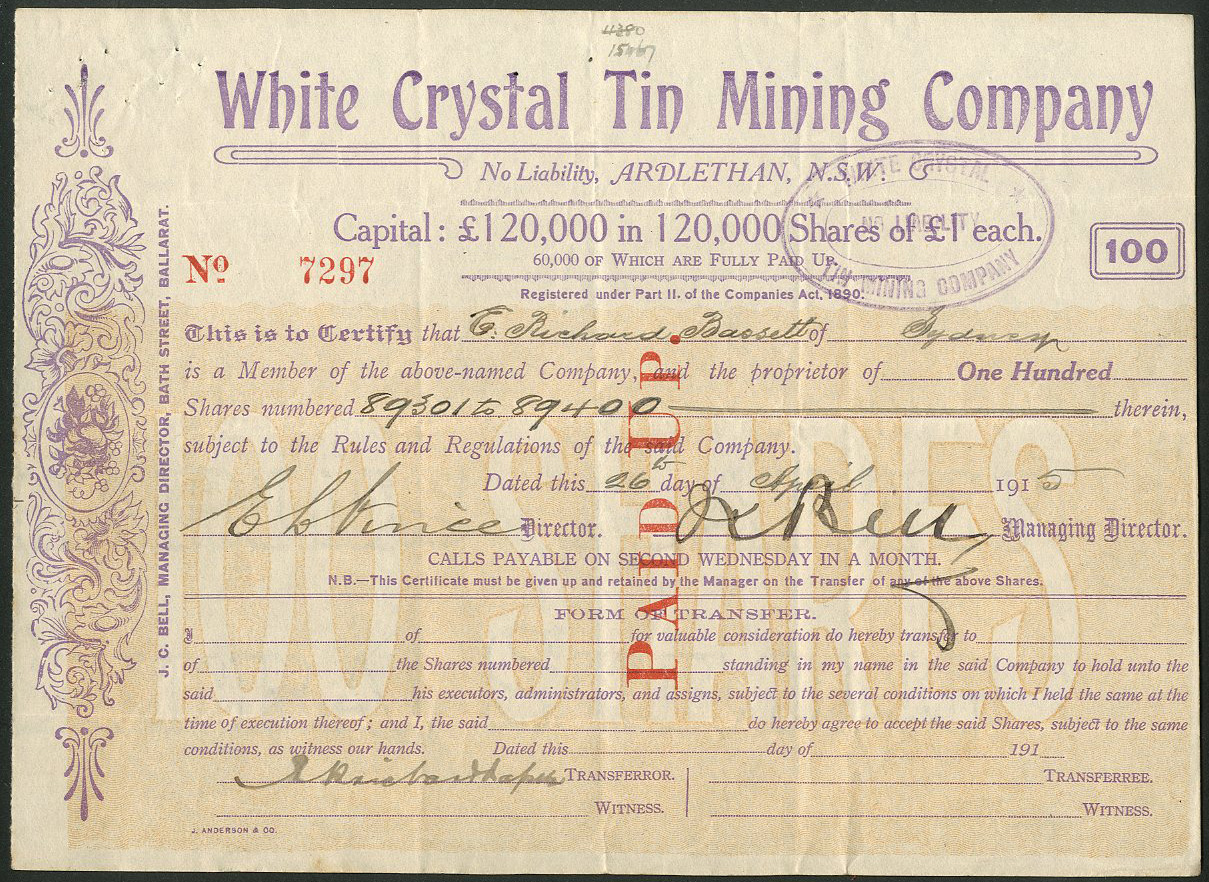 4380
White Crystal Tin Mining Company
No Liability, ARDLETHAN, N.S.W.
Capital: £120,000 in 120,000 Shares of £1 each.
60,000 OF WHICH ARE FULLY PAID UP.
Registered under Part II. of the Companies Act, 1890.
WHITE CRYSTAL
NO LIABILITY
TIN MINING COMPANY
100
No 7297
J. C. BELL, MANAGING DIRECTOR, BATH STREET, BALLARAT.
This is to Certify that Richard Bassett of Sydney
is a Member of the above-named Company, and the proprietor of One Hundred
Shares numbered 89301 to 89400 therein,
subject to the Rules and Regulations of the said Company.
Dated this 26th day of April 1915
Director. J C Bell Managing Director.
PAID UP.
CALLS PAYABLE ON SECOND WEDNESDAY IN A MONTH.
N.B.—This Certificate must be given up and retained by the Manager on the Transfer of any of the above Shares.
FORM OF TRANSFER.
I of for valuable consideration do hereby transfer to
of the Shares numbered standing in my name in the said Company to hold unto the
said his executors, administrators, and assigns, subject to the several conditions on which I held the same at the
time of execution thereof; and I, the said do hereby agree to accept the said Shares, subject to the same
conditions, as witness our hands. Dated this day of 191
TRANSFERROR. TRANSFERREE.
WITNESS. WITNESS.
J. ANDERSON & CO.
100 SHARES